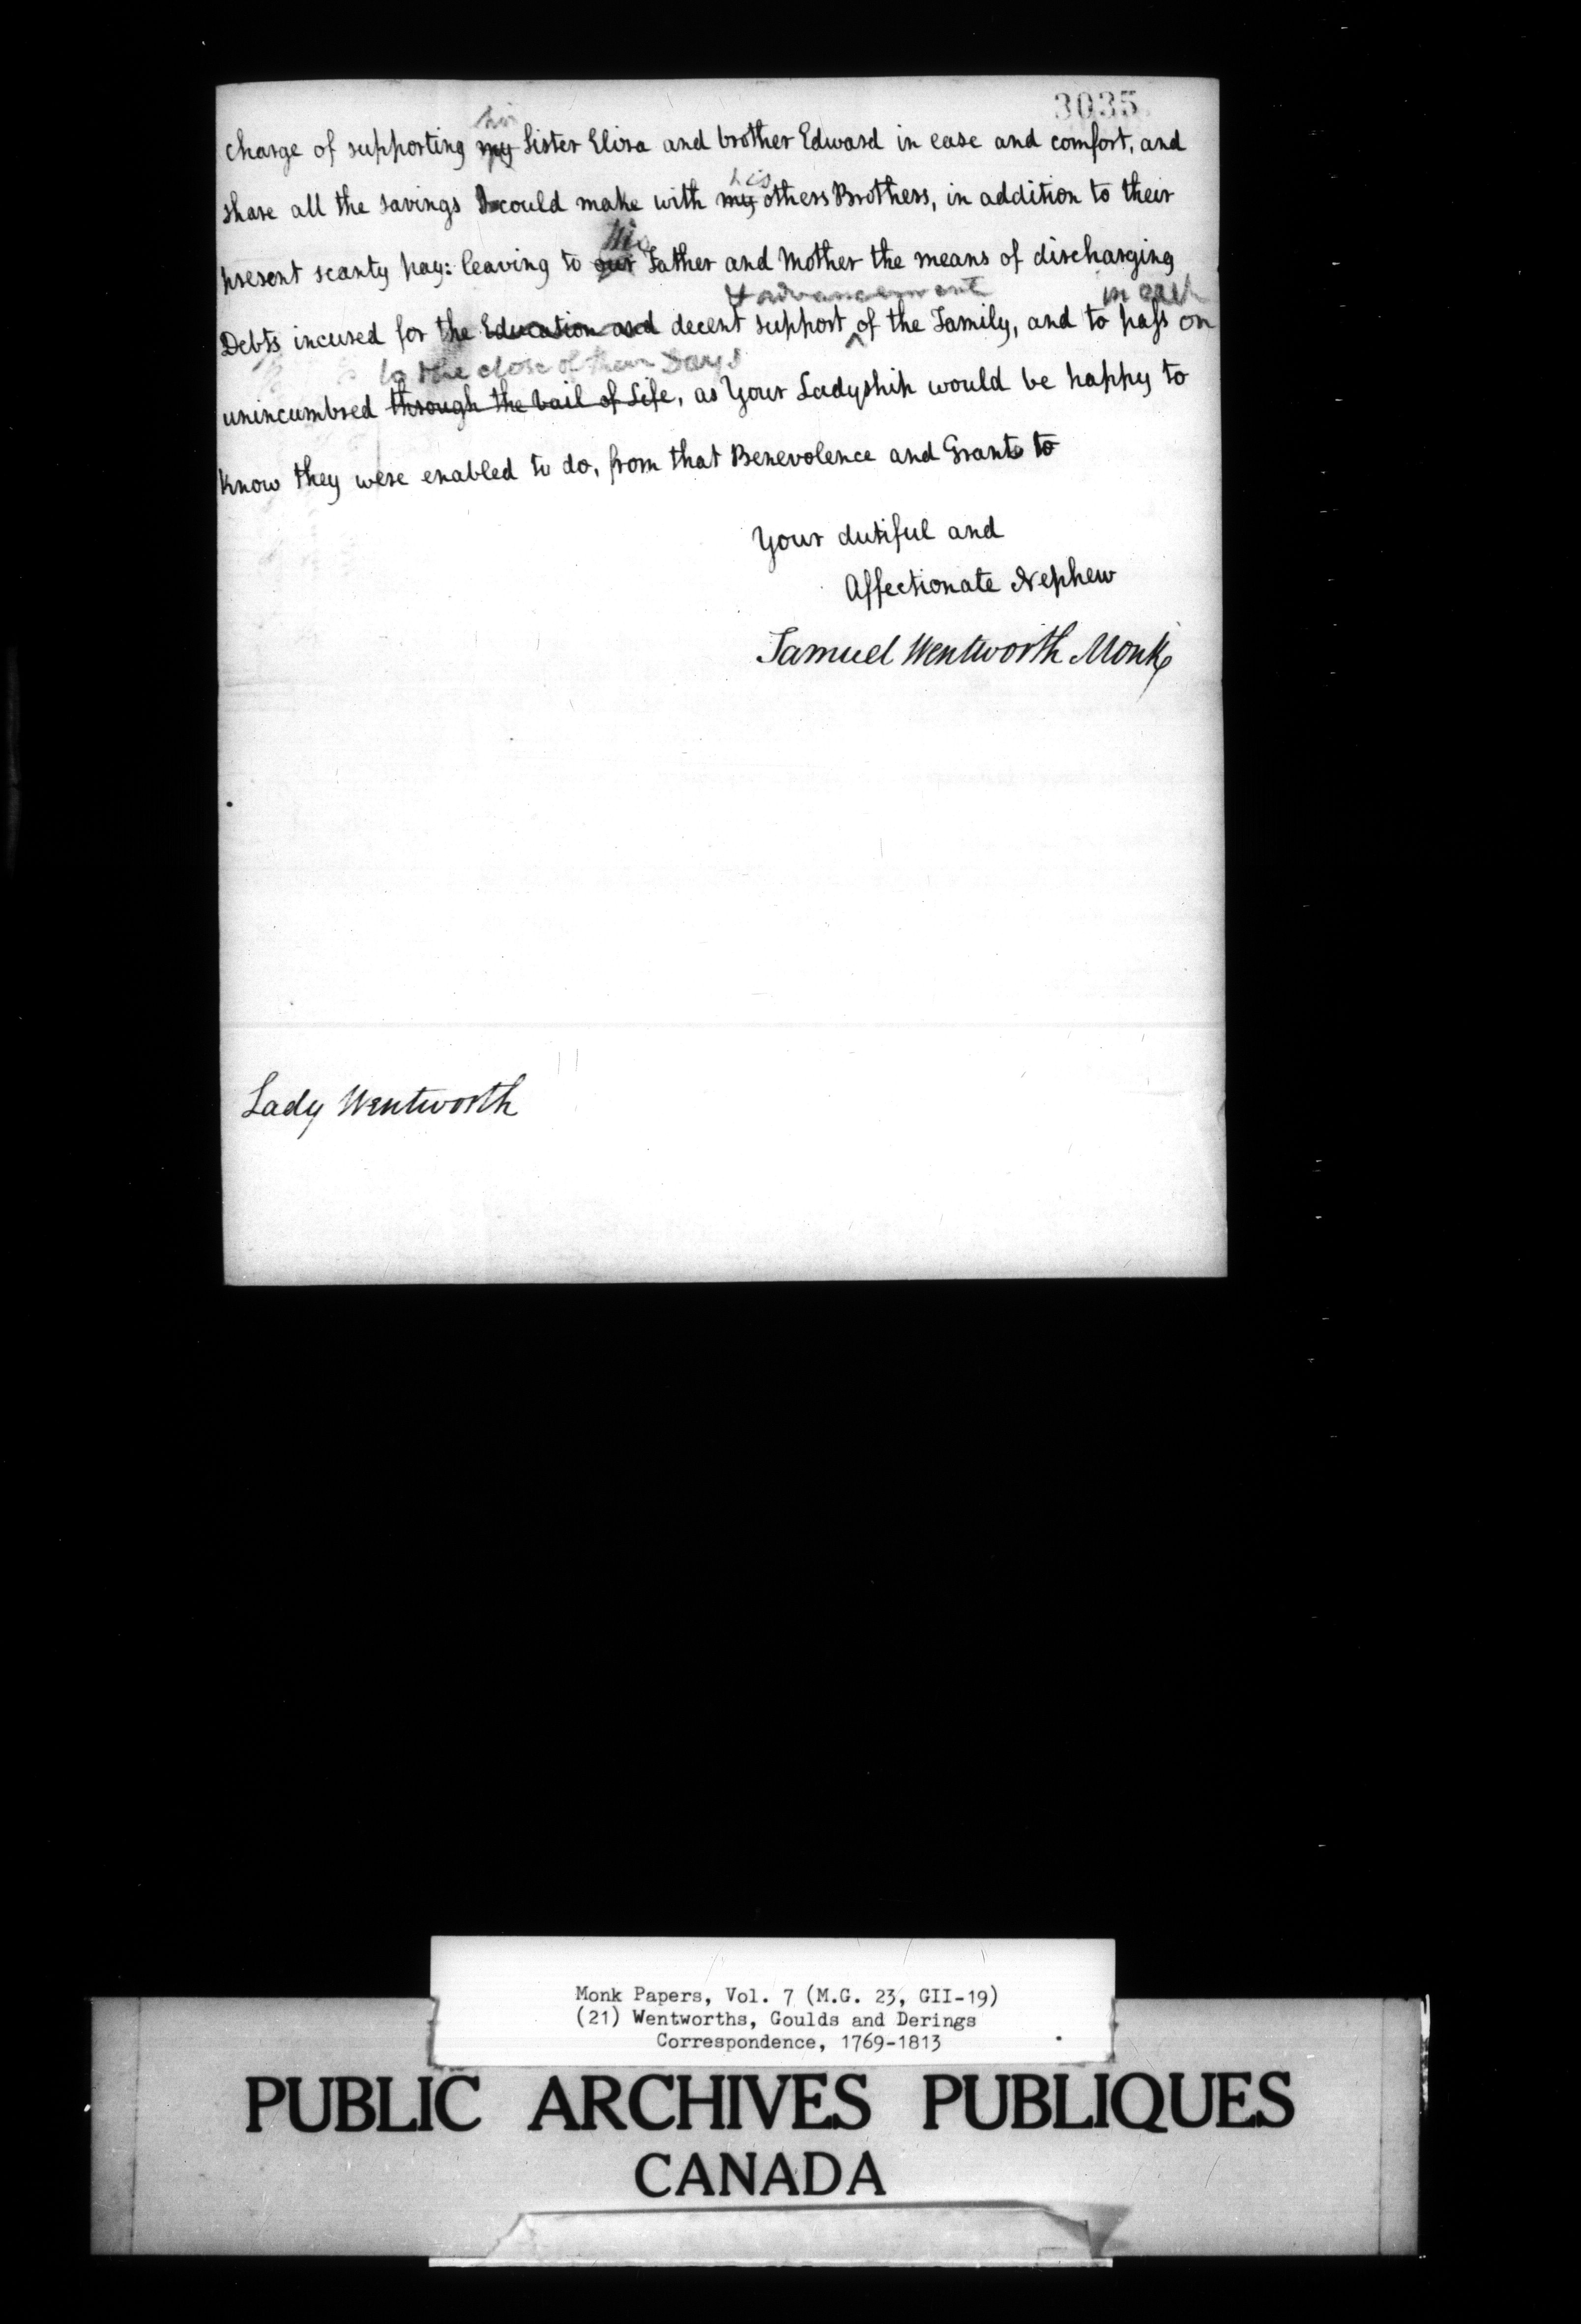 3035
his
charge of supporting my Sister Eliza and brother Edward in ease and comfort, and
his
share all the savings I could make with my others Brothers, in addition to their
his
present scanty pay: leaving to our Father and Mother the means of discharging
& advancement in each
Debts incured for the Education and decent support ^ of the Family, and to pass on
to the close of their Days
unincumbred through the vail of Life, as Your Ladyship would be happy to
know they were enabled to do, from that Benevolence and Grants to
Your dutiful and
Affectionate Nephew
Samuel Wentworth Monk
Lady Wentworth
Monk Papers, Vol. 7 (M.G. 23, GII-19)
(21) Wentworths, Goulds and Derings
Correspondence, 1769-1813
PUBLIC ARCHIVES PUBLIQUES
CANADA